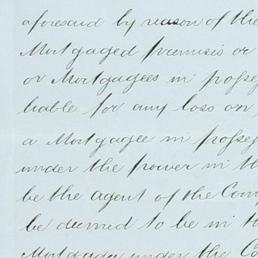 aforesaid by reason of the
Mortgaged premises or
or Mortgagees in posses
liable for any loss on
a Mortgagee in posses
under the power in th
be the agent of the Com
be deemed to be in th
Mortgagee under the Co